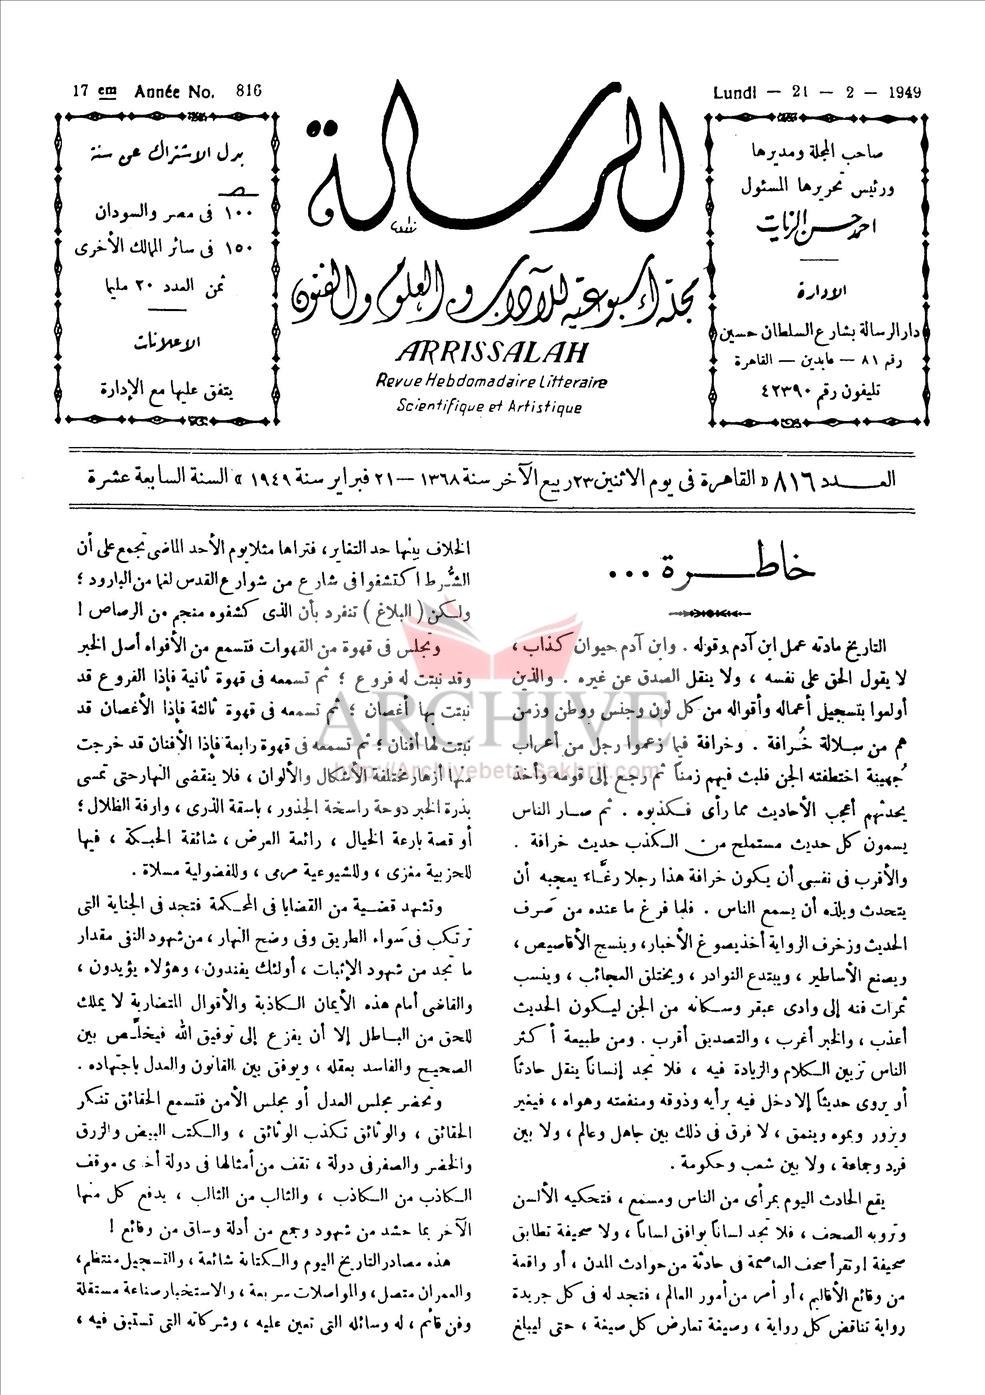 17 em Année No. 816
Lundi — 21 — 2 — 1949
بدل الاشتراك عن سنة
١٠٠ فى مصر والسودان
١٥٠ فى سائر الممالك الأخرى
ثمن العدد ٢٠ مليما
الاعلانات
يتفق عليها مع الإدارة
الرسالة
مجلة أسبوعية للآداب والعلوم والفنون
ARRISSALAH
Revue Hebdomadaire Litteraire
Scientifique et Artistique
صاحب المجلة ومديرها
ورئيس تحريرها المسئول
احمد حسن الزيات
الادارة
دار الرسالة بشارع السلطان حسين
رقم ٨١ — عابدين — القاهرة
تليفون رقم ٤٢٣٩٠
العـــدد ٨١٦ « القاهرة فى يوم الاثنين ٢٣ ربيع الآخر سنة ١٣٦٨ — ٢١ فبراير سنة ١٩٤٩ » السنة السابعة عشرة
خاطـــرة ...
التاريخ مادته عمل ابن آدم وقوله . وابن آدم حيوان كذاب ،
لا يقول الحق على نفسه ، ولا ينقل الصدق عن غيره . والذين
أولموا بتسجيل أعماله وأقواله من كل لون وجنس ووطن وزمن
هم من سلالة خُرافة . وخرافة فيما زعموا رجل من أعراب
جُهينة اختطفته الجن فلبث فيهم زمناً ثم رجع إلى قومه وأخذ
يحدثهم أعجب الأحاديث مما رأى فكذبوه . ثم صار الناس
يسمون كل حديث مستملح من الكذب حديث خرافة .
والأقرب فى نفسى أن يكون خرافة هذا رجلا رغَّاء يعجبه أن
يتحدث ويلذه أن يسمع الناس . فلما فرغ ما عنده من صَرف
الحديث وزخرف الرواية أخذ يصوغ الأخبار، وينسج الأقاصيص ،
ويصنع الأساطير ، ويبتدع النوادر ، ويختلق العجائب ، وينسب
ثمرات فنه إلى وادى عبقر وسكانه من الجن ليكون الحديث
أعذب ، والخبر أغرب ، والتصديق أقرب . ومن طبيعة أكثر
الناس تزيين الكلام والزيادة فيه ، فلا تجد إنساناً ينقل حادثاً
أو يروى حديثاً إلا دخل فيه برأيه وذوقه ومنفعته وهواه ، فيغير
ويزور ويموه وينمق ، لا فرق فى ذلك بين جاهل وعالم ، ولا بين
فرد وجماعة ، ولا بين شعب وحكومة .
يقع الحادث اليوم بمرأى من الناس ومسمع ، فتحكيه الألسن
وترويه الصحف ، فلا تجد لساناً يوافق لساناً ، ولا صحيفة تطابق
صحيفة ! وتقرأ صحف العاصمة فى حادثة من حوادث المدن ، أو واقعة
من وقائع الأقاليم ، أو أمر من أمور العالم ، فتجد له فى كل جريدة
رواية تناقض كل رواية ، وصيغة تعارض كل صيغة ، حتى ليبلغ
الخلاف بينها حد التغاير، فتراها مثلا يوم الأحد الماضى تجمع على أن
الشُّرط اكتشفوا فى شارع من شوارع القدس لغما من البارود ؛
ولكن ( البلاغ ) تنفرد بأن الذى كشفوه منجم من الرصاص !
وتجلس فى قهوة من القهوات فتسمع من الأفواه أصل الخبر
وقد نبتت له فروع ؛ ثم تسمعه فى قهوة ثانية فإذا الفروع قد
نبتت بها أغصان ؛ ثم تسمعه فى قهوة ثالثة فإذا الأغصان قد
نبتت لها أفنان ؛ ثم تسمعه فى قهوة رابعة فإذا الأفنان قد خرجت
منها أزهار مختلفة الأشكال والألوان ، فلا ينقضى النهار حتى تمسى
بذرة الخبر دوحة راسخة الجذور ، باسقة الذرى ، وارفة الظلال ؛
أو قصة بارعة الخيال ، رائعة العرض ، شائقة الحبكة ، فيها
للحزبية مغزى ، وللشيوعية مرمى ، وللفضولية مسلاة .
وتشهد قضية من القضايا فى المحكمة فتجد فى الجناية التى
ترتكب فى سَواء الطريق وفى وضح النهار ، من شهود النفى مقدار
ما تجد من شهود الإثبات ، أولئك يفندون، وهؤلاء يؤيدون ،
والقاضى أمام هذه الأيمان الكاذبة والأقوال المتضاربة لا يملك
للحق من الباطل إلا أن يفزع إلى توفيق الله فيخلِّص بين
الصحيح والفاسد بعقله ، ويوفق بين القانون والعدل باجتهاده .
وتحضر مجلس العدل أو مجلس الأمن فتسمع الحقائق تنكر
الحقائق ، والوثائق تكذب الوثائق ، والكتب البيض والزرق
والخضر والصفر فى دولة ، تقف من أمثالها فى دولة أخرى موقف
الكاذب من الكاذب ، والثالب من الثالب ، يدفع كل منها
الآخر بما حشد من شهود وجمع من أدلة وساق من وقائع !
هذه مصادر التاريخ اليوم والكتابة شائعة ، والتسجيل منتظم،
والعمران متصل، والمواصلات سريعة ، والاستخبار صناعة مستقلة
وفن قائم ، له وسائله التى تعين عليه ، وشركاته التى تستبق فيه ،
ARCHIVE
http://Archivebeta.Sakhrit.com